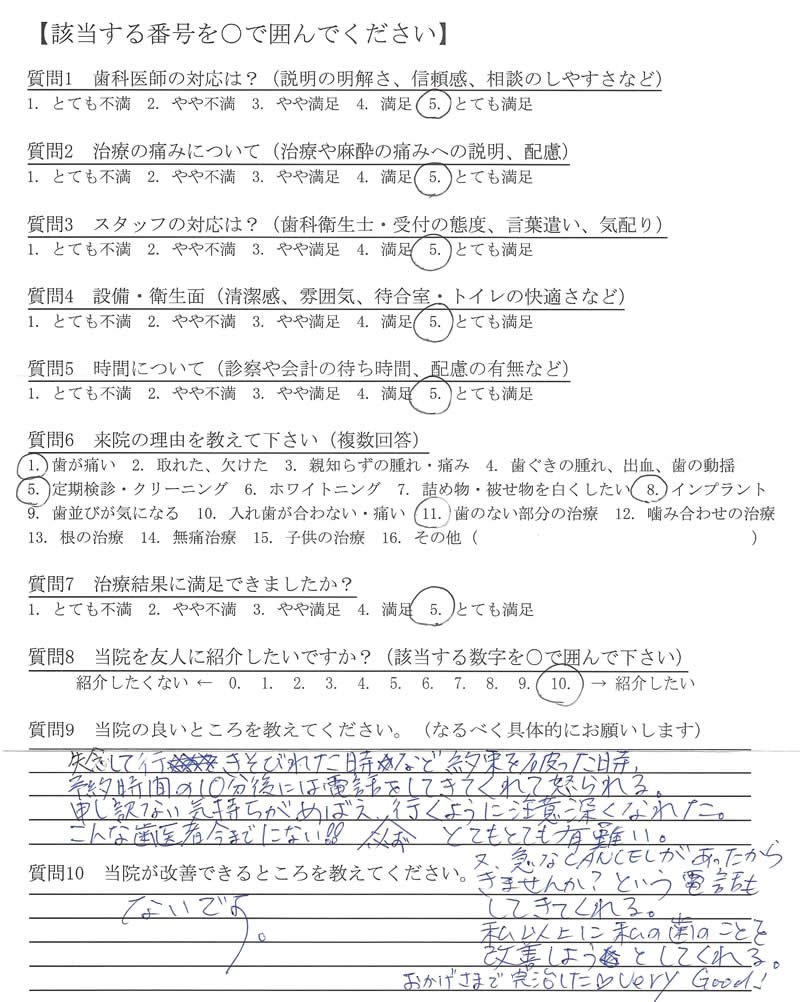 【該当する番号を〇で囲んでください】
質問1 歯科医師の対応は？（説明の明解さ、信頼感、相談のしやすさなど）
1. とても不満 2. やや不満 3. やや満足 4. 満足 5. とても満足
質問2 治療の痛みについて（治療や麻酔の痛みへの説明、配慮）
1. とても不満 2. やや不満 3. やや満足 4. 満足 5. とても満足
質問3 スタッフの対応は？（歯科衛生士・受付の態度、言葉遣い、気配り）
1. とても不満 2. やや不満 3. やや満足 4. 満足 5. とても満足
質問4 設備・衛生面（清潔感、雰囲気、待合室・トイレの快適さなど）
1. とても不満 2. やや不満 3. やや満足 4. 満足 5. とても満足
質問5 時間について（診察や会計の待ち時間、配慮の有無など）
1. とても不満 2. やや不満 3. やや満足 4. 満足 5. とても満足
質問6 来院の理由を教えて下さい（複数回答）
1. 歯が痛い 2. 取れた、欠けた 3. 親知らずの腫れ・痛み 4. 歯ぐきの腫れ、出血、歯の動揺
5. 定期検診・クリーニング 6. ホワイトニング 7. 詰め物・被せ物を白くしたい 8. インプラント
9. 歯並びが気になる 10. 入れ歯が合わない・痛い 11. 歯のない部分の治療 12. 噛み合わせの治療
13. 根の治療 14. 無痛治療 15. 子供の治療 16. その他（ ）
質問7 治療結果に満足できましたか？
1. とても不満 2. やや不満 3. やや満足 4. 満足 5. とても満足
質問8 当院を友人に紹介したいですか？（該当する数字を〇で囲んで下さい）
紹介したくない ← 0. 1. 2. 3. 4. 5. 6. 7. 8. 9. 10. → 紹介したい
質問9 当院の良いところを教えてください。（なるべく具体的にお願いします）
失念して行きそびれた時など 約束を破った時、
予約時間の10分後には電話をしてきてくれて怒られる。
申し訳ない気持ちがめばえ、行くように注意深くなれた。
こんな歯医者今までにない!! とてもとても有難い。
又、急なCANCELがあったから
きませんか？という電話も
してきてくれる。
私以上に私の歯のことを
改善しようとしてくれる。
おかげさまで完治した♡ Very Good!
質問10 当院が改善できるところを教えてください。
ないです。